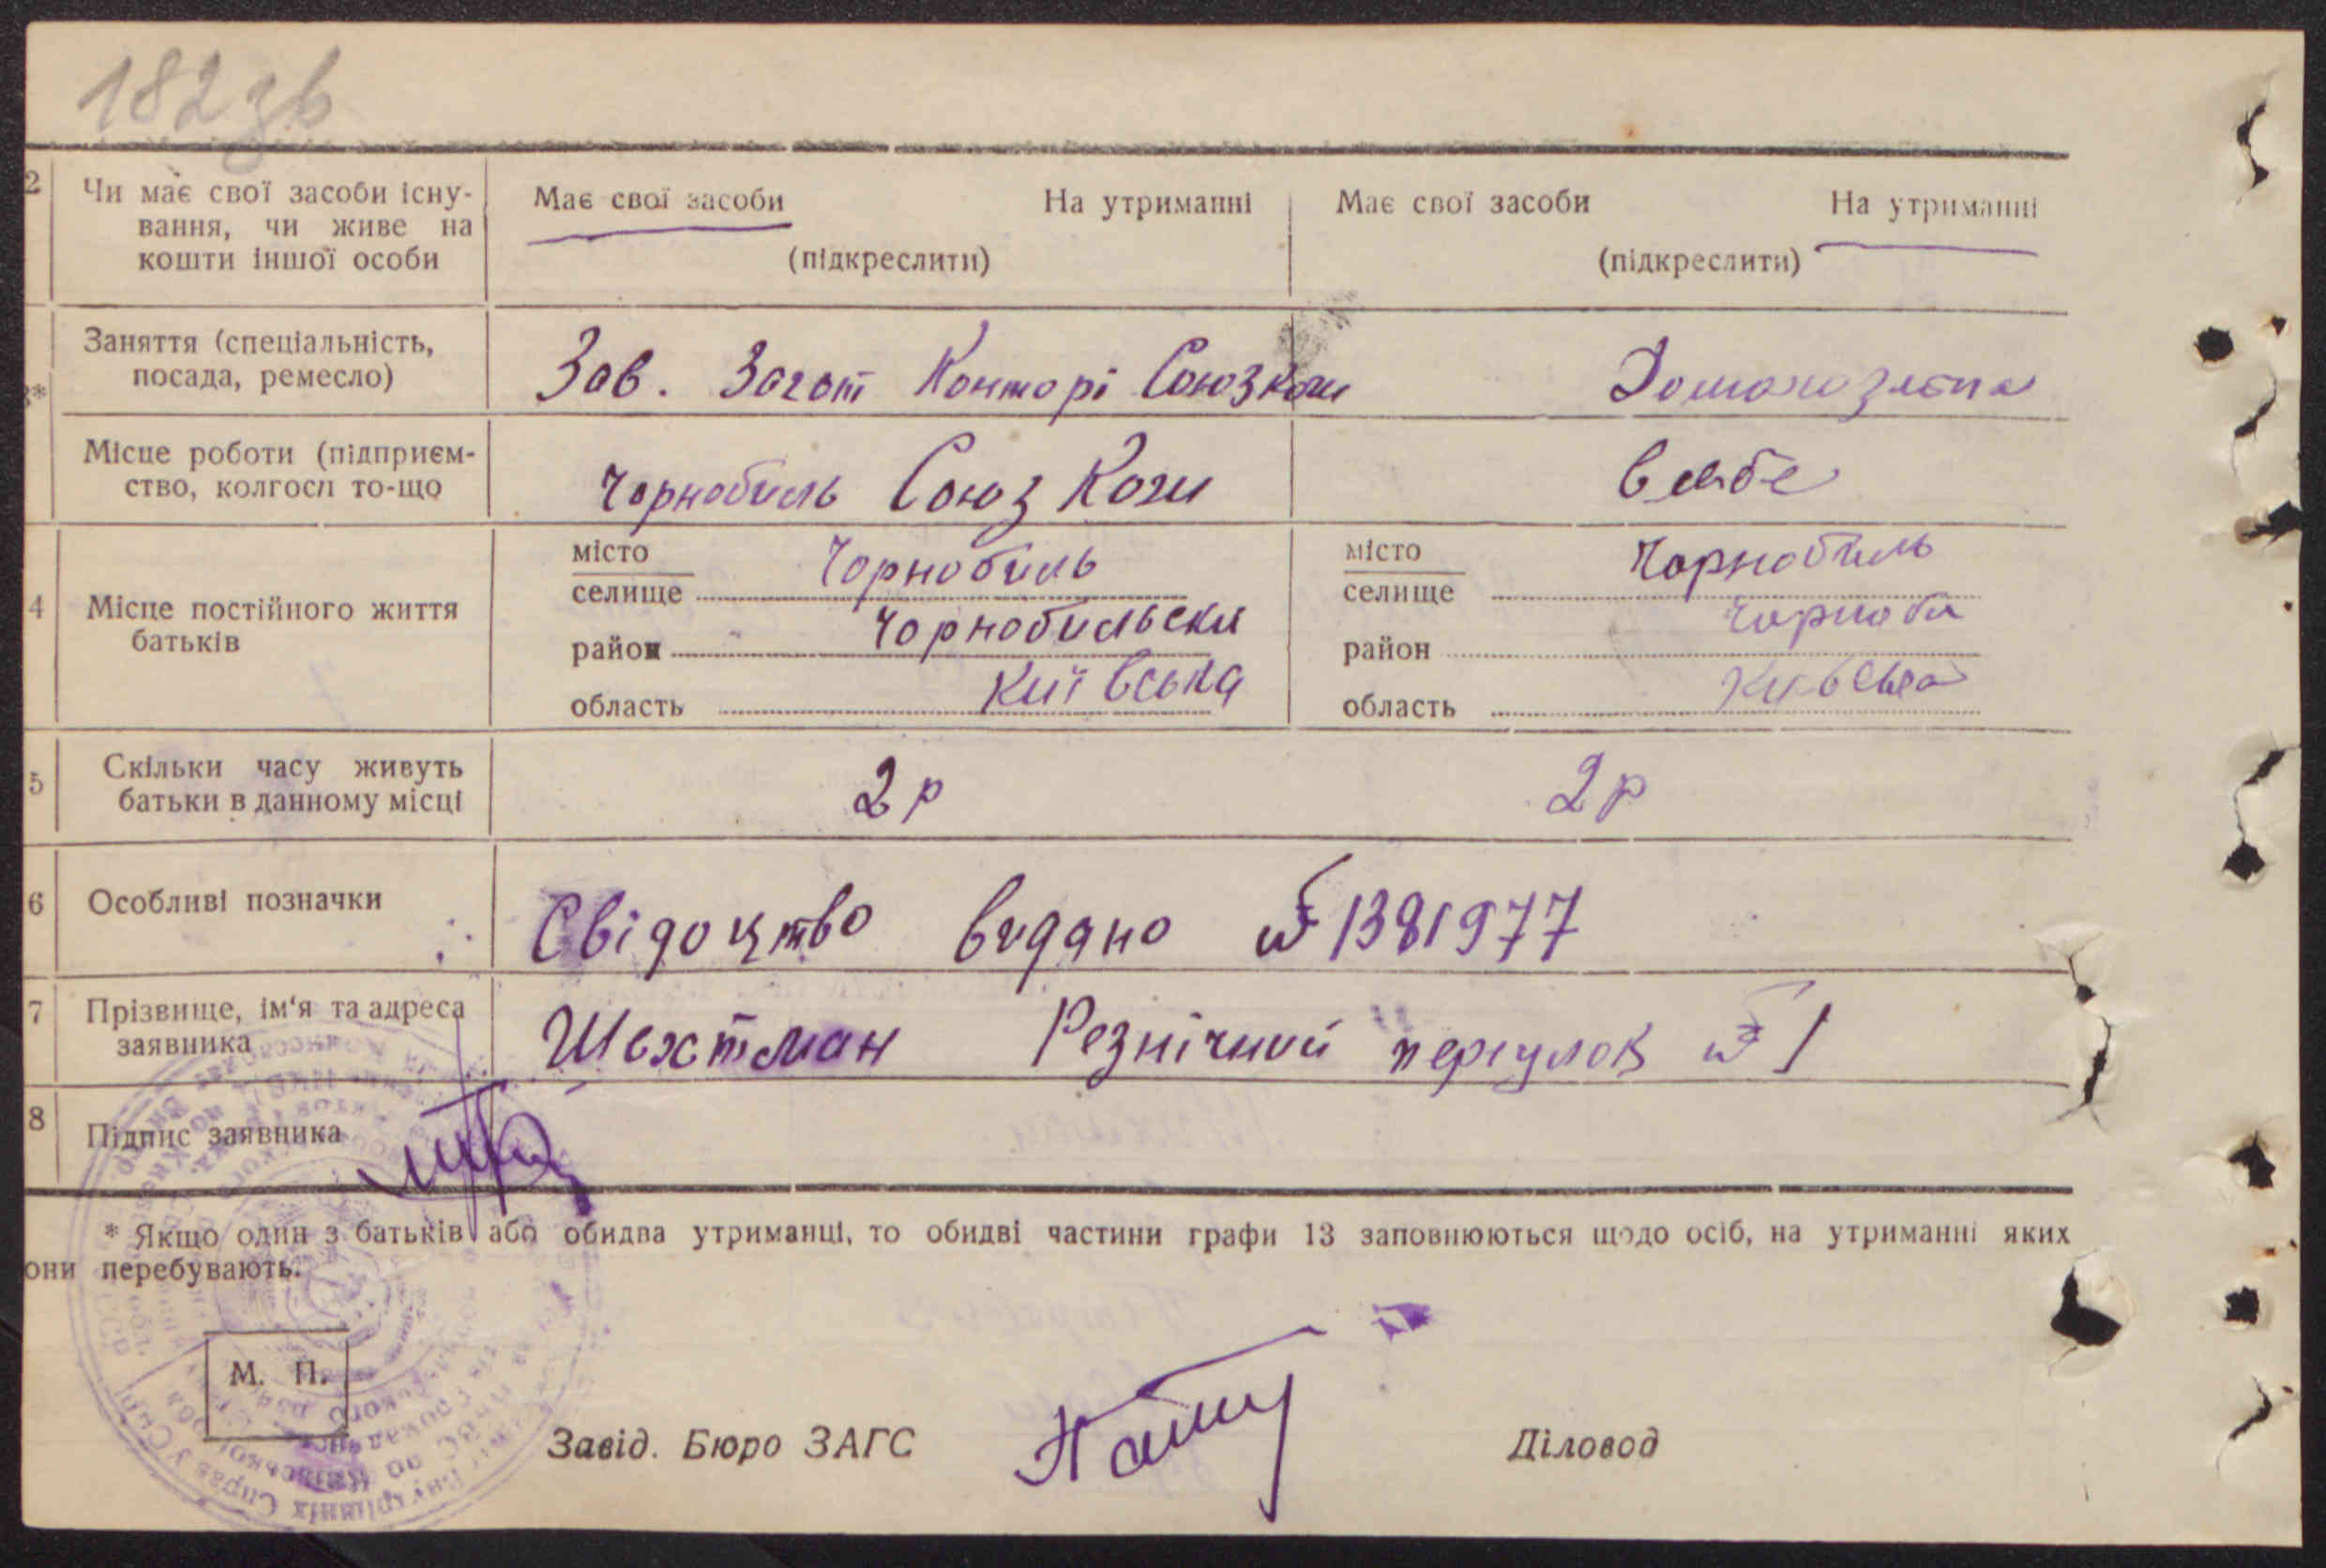 182 зв
2 Чи має свої засоби існу-
вання, чи живе на
кошти іншої особи
Має свої засоби На утриманні
(підкреслити)
Має свої засоби На утриманні
(підкреслити)
3*
Заняття (спеціальність,
посада, ремесло)
Зав. Загот Конторі Союзкожи
Домохозяєпка
Місце роботи (підприєм-
ство, колгосп то-що
Чорнобиль Союз Кожи
в себе
4 Місце постійного життя
батьків
місто
селище Чорнобиль
район Чорнобильски
область Київська
місто
селище Чорнобиль
район Чорноби
область Київська
5 Скільки часу живуть
батьки в данному місці
2 р
2 р
6 Особливі позначки
Свідоцтво видано № 1381977
7 Прізвище, ім'я та адреса
заявника
Шехтман Резнічний переулок № 1
8 Підпис заявника
* Якщо один з батьків або обидва утриманці, то обидві частини графи 13 заповнюються щодо осіб, на утриманні яких
они перебувають.
М. П.
Завід. Бюро ЗАГС
Діловод